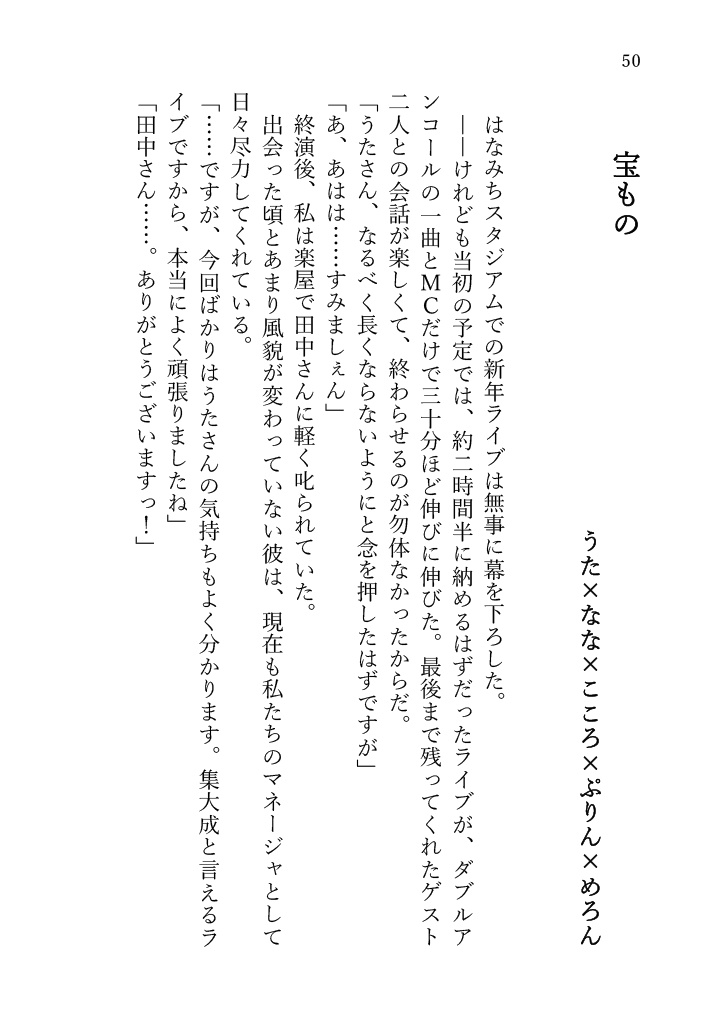 50
宝もの
うた×なな×こころ×ぷりん×めろん
はなみちスタジアムでの新年ライブは無事に幕を下ろした。
――けれども当初の予定では、約二時間半に納めるはずだったライブが、ダブルア
ンコールの一曲とＭＣだけで三十分ほど伸びに伸びた。最後まで残ってくれたゲスト
二人との会話が楽しくて、終わらせるのが勿体なかったからだ。
「うたさん、なるべく長くならないようにと念を押したはずですが」
「あ、あはは……すみましぇん」
終演後、私は楽屋で田中さんに軽く叱られていた。
出会った頃とあまり風貌が変わっていない彼は、現在も私たちのマネージャとして
日々尽力してくれている。
「……ですが、今回ばかりはうたさんの気持ちもよく分かります。集大成と言えるラ
イブですから、本当によく頑張りましたね」
「田中さん……。ありがとうございますっ！」